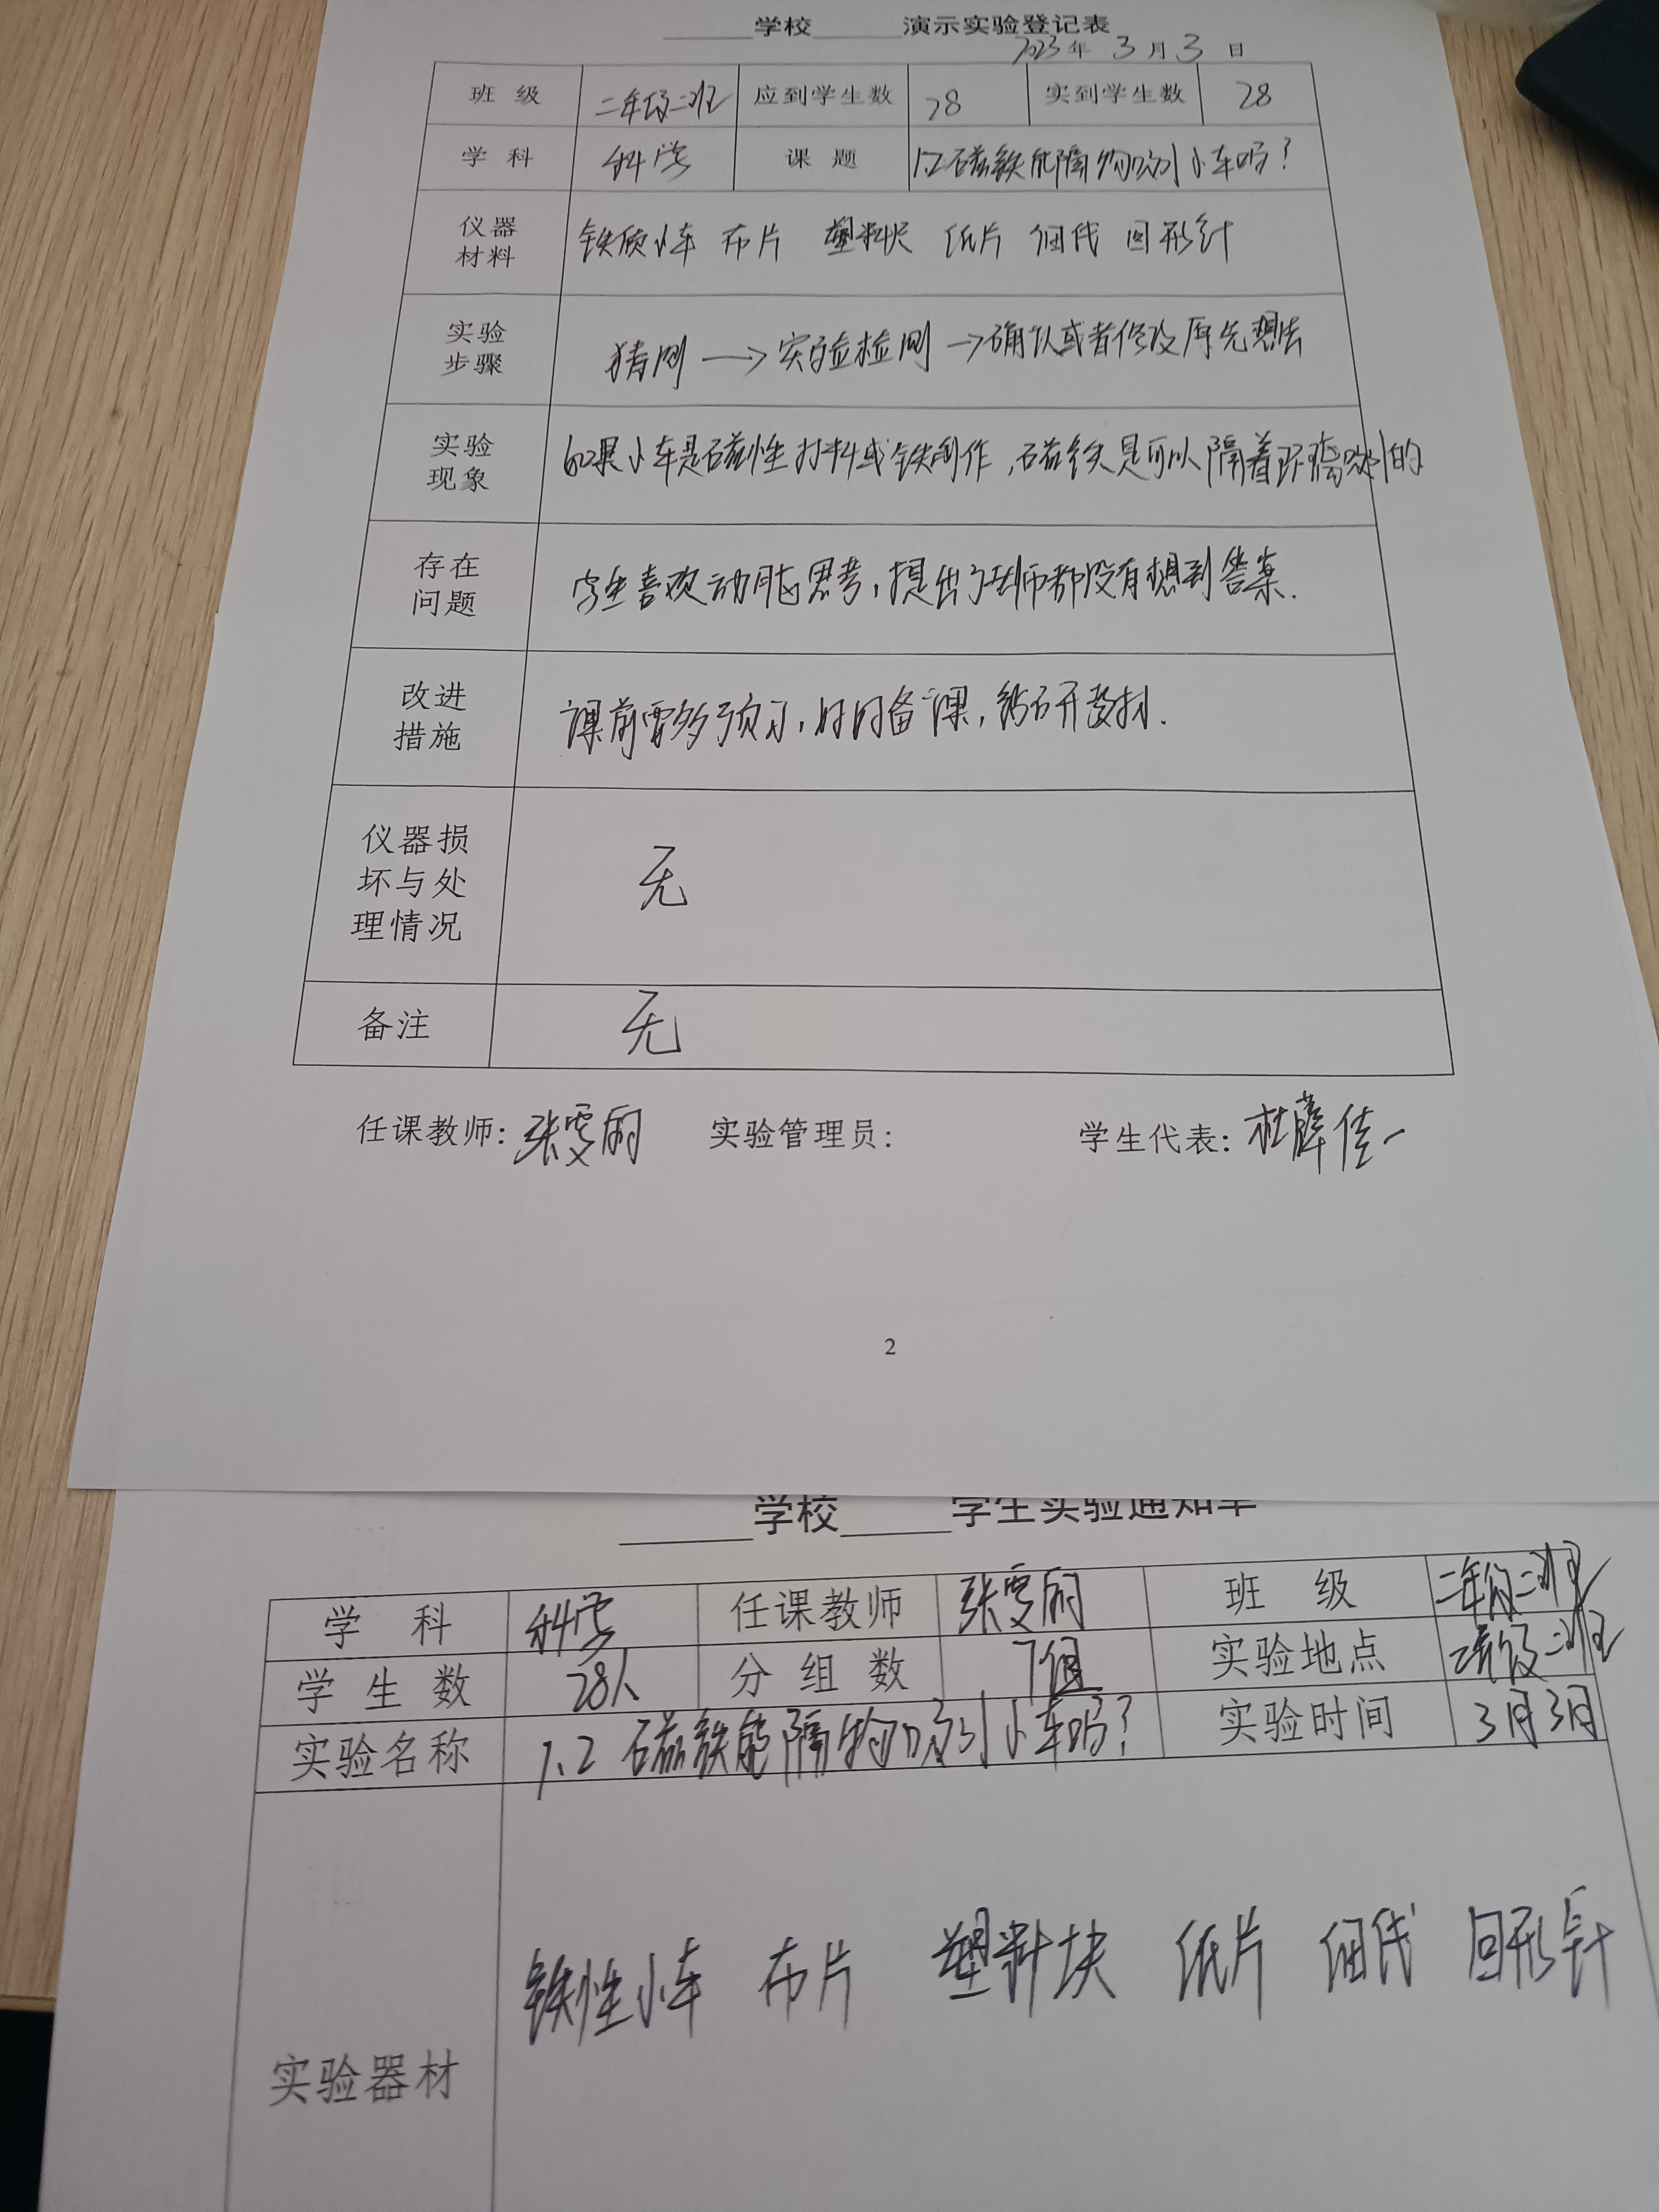 ______学校______演示实验登记表
2023年 3月3日
班 级 二年级二班 应到学生数 28 实到学生数 28
学 科 科学 课 题 1.2磁铁能隔物吸引小车吗？
仪器材料 铁质小车 布片 塑料尺 纸片 回形针
实验步骤 猜测 → 实验检测 → 确认或者修改原先想法
实验现象 如果小车是磁性材料或铁制作，磁铁是可以隔着距离吸引的
存在问题 学生喜欢动脑思考，提出了老师都没有想到答案.
改进措施 课前要多预习，时时备课，钻研教材.
仪器损坏与处理情况 无
备注 无
任课教师：张雯丽 实验管理员： 学生代表：杜薛佳一
2
______学校______学生实验通知单
学 科 科学 任课教师 张雯丽 班 级 二年级二班
学 生 数 28人 分 组 数 7组 实验地点 二年级二班
实验名称 1.2 磁铁能隔物吸引小车吗？ 实验时间 3月3日
实验器材 铁性小车 布片 塑料块 纸片 回形针